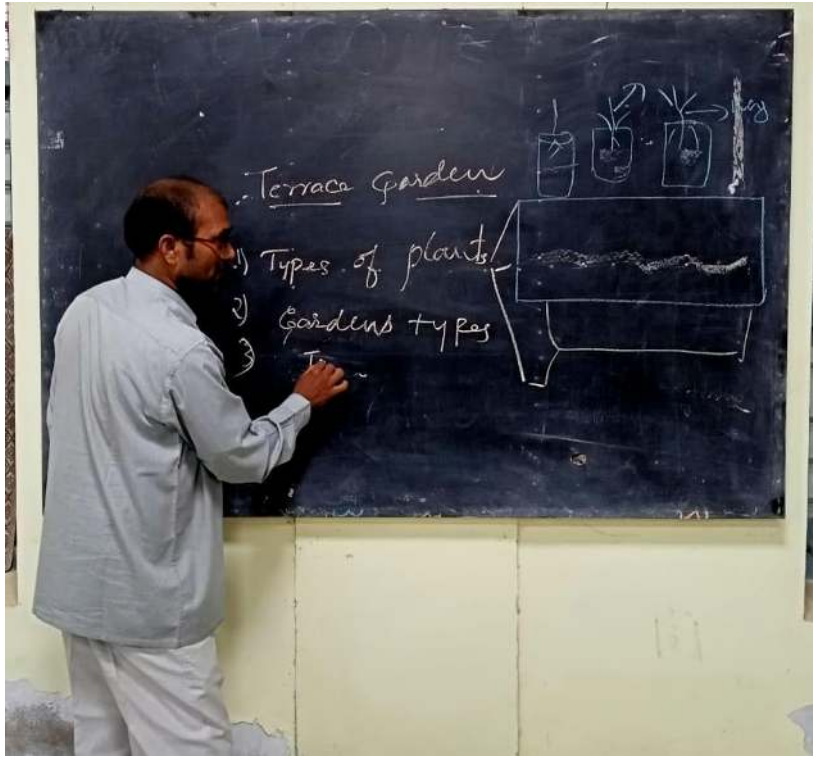 Terrace Garden
1) Types of plants
2) Gardens types
3)